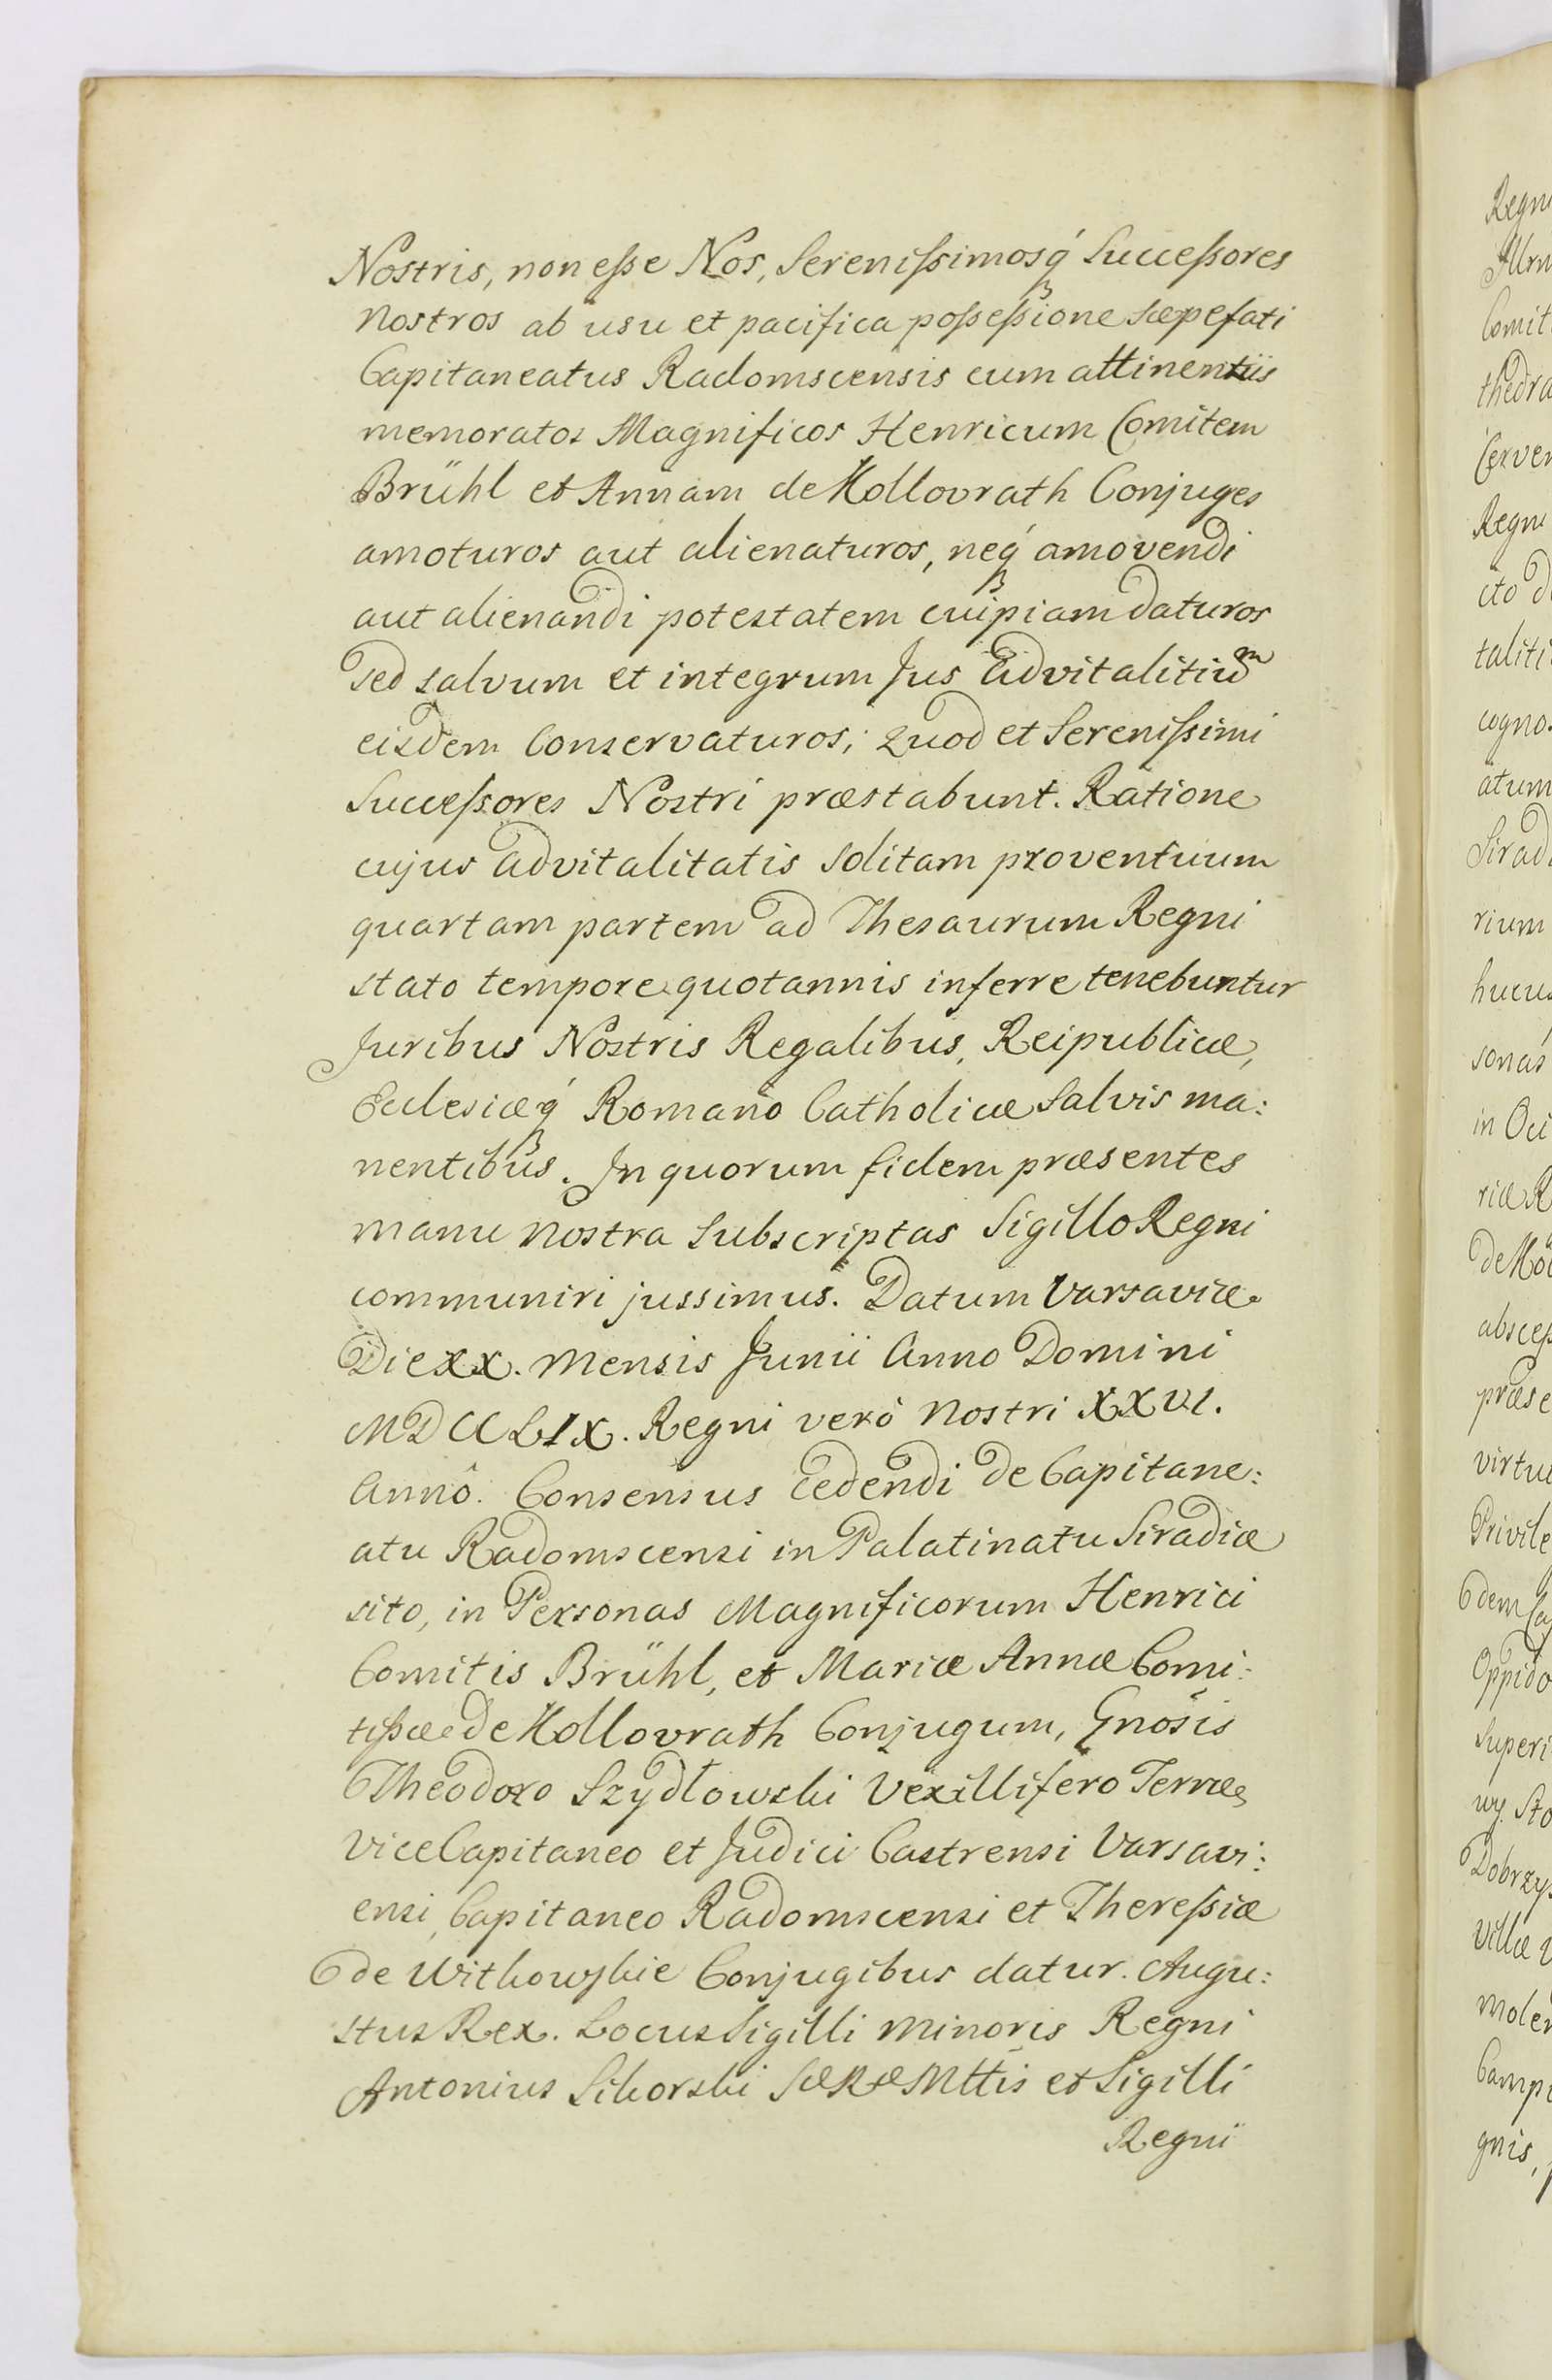 Nostris, non eſse Nos, Sereniſsimosq́ Succeſsores
nostros ab usu et pacifica poſseſsione sæpefati
Capitaneatus Radomscensis cum attinentiis
memoratos Magnificos Henricum Comitem
Brühl et Annam de Kollovrath Conjuges
amoturos aut alienaturos, neq́ amovendi
aut alienandi potestatem cuipiam daturos
sed salvum et integrum Jus Advitalitiũm
eisdem Conservaturos; quod et Sereniſsimi
Succeſsores Nostri præstabunt. Ratione
cujus advitalitatis solitam proventuum
quartam partem ad Thesaurum Regni
stato tempore quotannis inferre tenebuntur
Juribus Nostris Regalibus, Reipublicæ,
Eclesiæq́ Romano Catholicæ Salvis ma:
nentibus. In quorum fidem præsentes
manu nostra Subscriptas Sigillo Regni
communiri jussimus. Datum Varsaviæ
Die XX. Mensis Junii Anno Domini
MDCCLIX. Regni verò nostri XXVI.
Annô. Consensus cedendi de Capitane:
atu Radomscensi in Palatinatu Siradiæ
sito, in Personas Magnificorum Henrici
Comitis Brühl, et Mariæ Annæ Comi:
tiſsæ de Kollovrath Conjugum, Gnosis
Theodoro Szydłowski Vexillifero Terræ
ViceCapitaneo et Judici Castrensi Varsavi:
ensi, Capitaneo Radomscensi et Thereſsiæ
de Witkowskie Conjugibus datur. Augu:
stus Rex. Locus Sigilli minoris Regni
Antonius Sikorski SæRæMttis et Sigilli
Regni
Regn
Comit
thedra
Cerven
Regni
cito d
taliti
cogno
atum
Siradi
rium
hucus
sonas
in Oci
riæ R
de Kol
absceſ
præse
virtu
Privile
dem Ca
Oppido
Superi
wy. Sto
Dobrzy
Villæ V
molen
Camp
gnis,